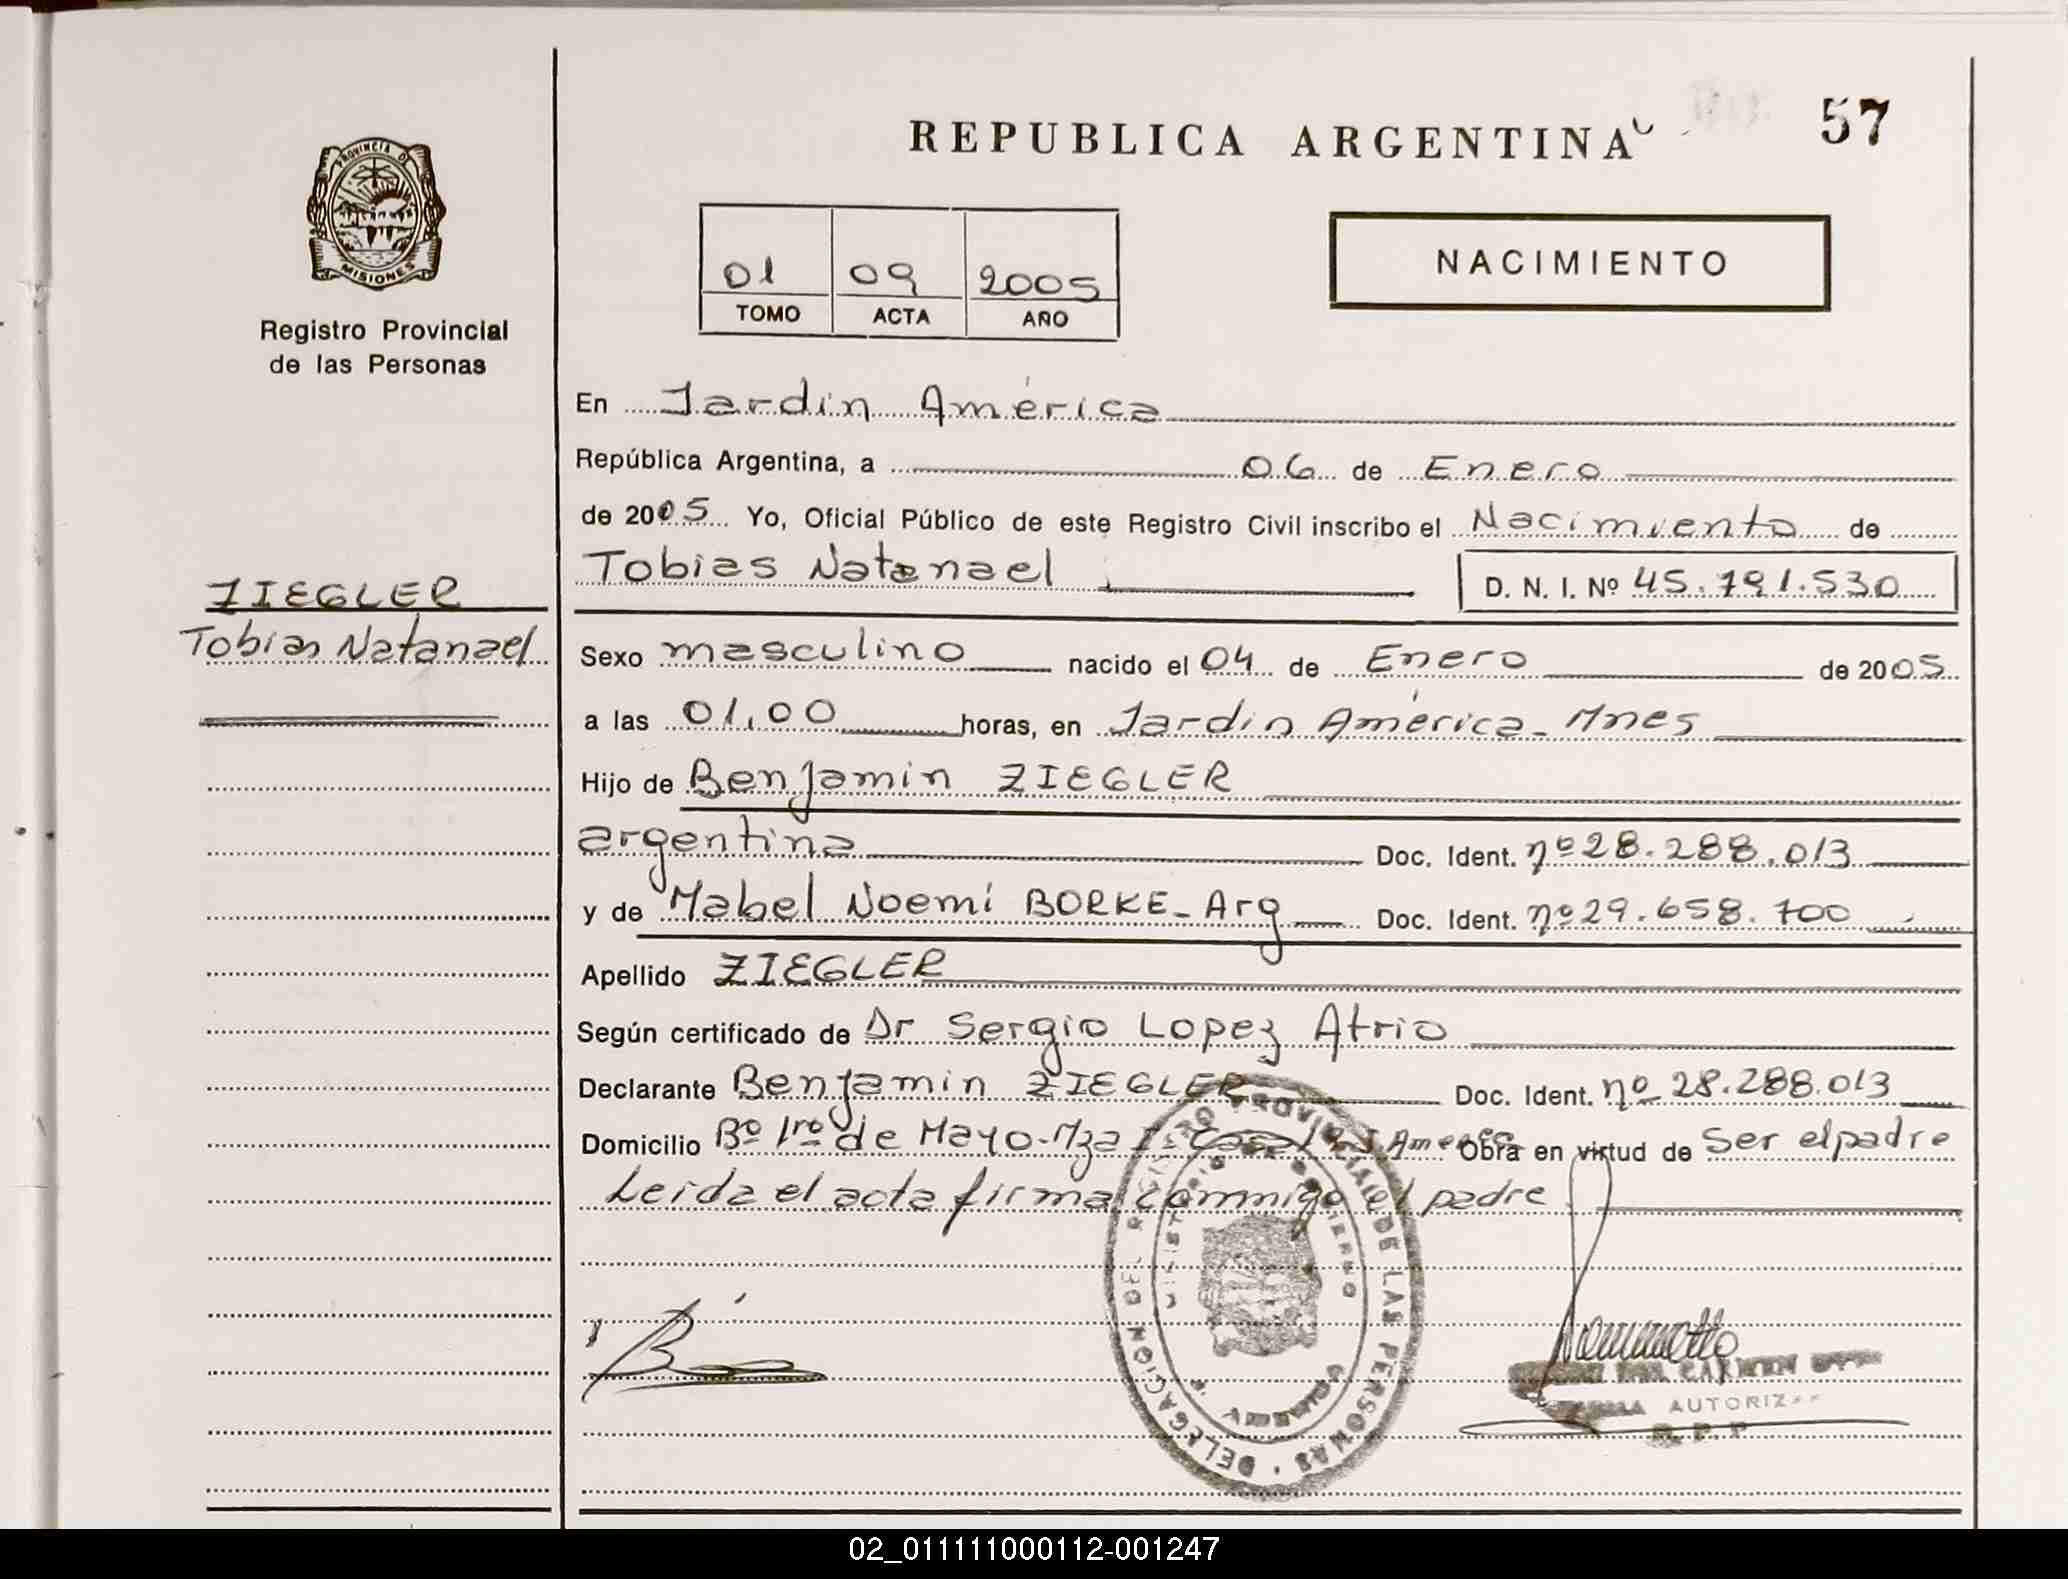 57
REPUBLICA ARGENTINA
PROVINCIA DE
MISIONES
Registro Provincial
de las Personas
01 09 2005
TOMO ACTA AÑO
NACIMIENTO
En Jardin América
República Argentina, a 06 de Enero
de 2005 Yo, Oficial Público de este Registro Civil inscribo el Nacimiento de
Tobias Natanael
D. N. I. Nº 45.791.530
ZIEGLER
Tobias Natanael
Sexo masculino nacido el 04 de Enero de 2005
a las 01,00 horas, en Jardin América - Mnes
Hijo de Benjamin ZIEGLER
argentina Doc. Ident. nº 28.288.013
y de Mabel Noemi BORKE - Arg Doc. Ident. nº 29.658.700
Apellido ZIEGLER
Según certificado de Dr Sergio Lopez Atrio
Declarante Benjamin ZIEGLER Doc. Ident. nº 28.288.013
Domicilio Bº 1ro de Mayo - Mza Obra en virtud de Ser el padre
Leida el acta firma conmigo el padre
DELEGACION DEL REGISTRO PROVINCIAL DE LAS PERSONAS
MINISTERIO DE GOBIERNO
DEL CARMEN
AUTORIZ
R. P. P.
02_011111000112-001247